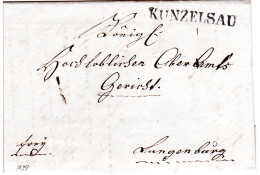 KUNZELSAU
Königl.
Hochlöblichen Ober Amts
Gericht.
frey
Langenburg